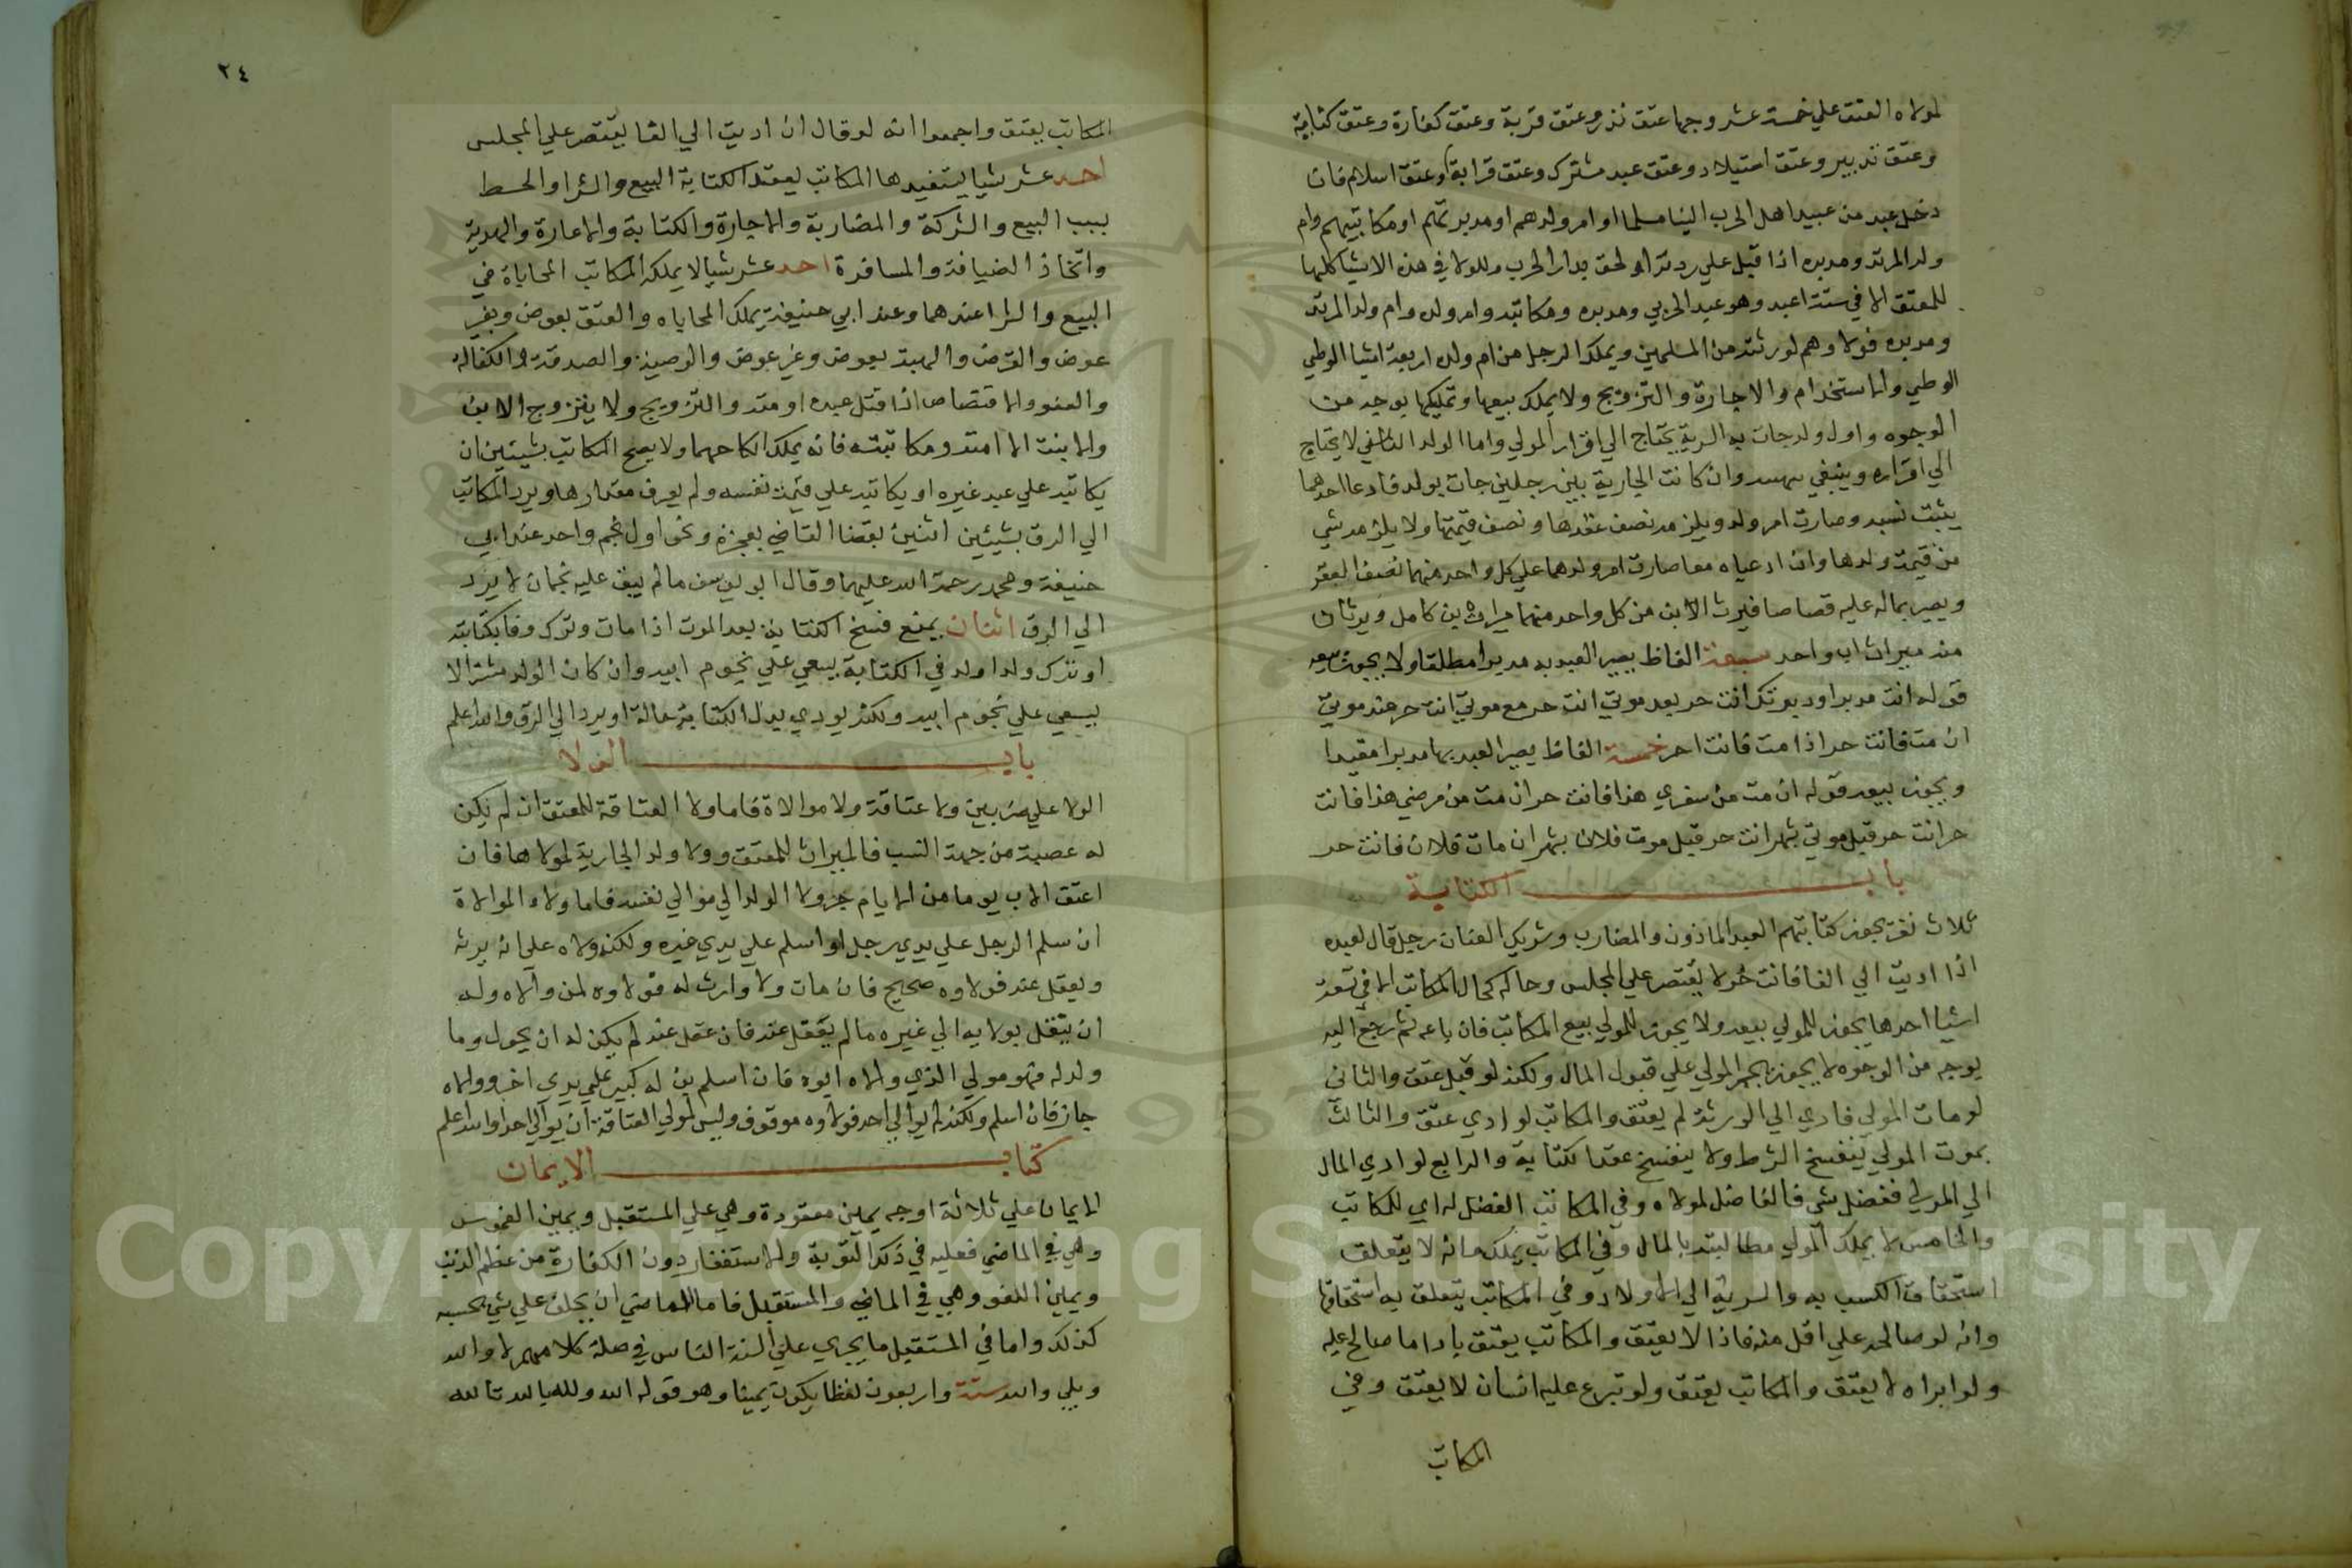 لمولاه العتق علي خمسة عشر وجها عتق نذر وعتق قربة وعتق كفارة وعتق كتابة
وعتق تدبير وعتق استيلاد وعتق عبد مشترك وعتق قرابة وعتق اسلام فان
دخل عبد من عبيد اهل الحرب الينا مسلما او ام ولدهم او مدبرتهم او مكاتبيهم وام
ولد المرتد ومدبره اذا قتل علي ردته او لحق بدار الحرب وللولا في هذه الاشيا كلها
للمعتق الا في ستة اعبد وهو عبد الحربي ومدبره ومكاتبه وام ولده وام ولد المرتد
ومدبره فولاوهم لورثته من المسلمين ويملك الرجل من ام ولده اربعة اشيا الوطي
الوطي والاستخدام والاجارة والتزويج ولا يملك بيعها وتمليكها بوجه من
الوجوه واول ولد جات به السرية يحتاج الي اقرار المولي واما الولد الثاني لا يحتاج
الي اقراره وينبغي وان كانت الجارية بين رجلين جات بولد فادعا احدهما
يثبت نسبه وصارت ام ولده ويلزمه نصف عقدها ونصف قيمتها ولا يلزمه شي
من قيمة ولدها وان ادعياه معا صارت ام ولدهما علي كل واحد منهما نصف العقر
ويصير بماله عليه قصاصا فيرث الابن من كل واحد منهما ميراث بن كامل ويرثان
منه ميراث اب واحد سبعة الفاظ يصير العبد به مدبرا مطلقا ولا يجوز بيعه
قوله انت مدبر او دبرتك انت حر بعد موتي انت حر مع موتي انت حر عند موتي
ان مت فانت حر اذا مت فانت احر خمسة الفاظ يصير العبد بها مدبرا مقيدا
ويجوز بيعه قوله ان مت من سفري هذا فانت حر ان مت من مرضي هذا فانت
حر انت حر قبل موتي بشهر انت حر قبل موت فلان بشهر ان مات فلان فانت حر
باب الكتابة
ثلاث نفر يجوز كتابتهم العبد الماذون والمضارب وشريك العنان رجل قال لعبده
اذا اديت الي الفا فانت حر لا يقتصر علي المجلس وحاله كحال المكاتب الا في تسعة
اشيا احدها يجوز للمولي بيعه ولا يجوز للمولي بيع المكاتب فان باعه ثم رجع اليه
بوجه من الوجوه لا يجوز يجبر المولي علي قبول المال ولكنه لو قبل عتق والثاني
لو مات المولي فادي الي الورثة لم يعتق والمكاتب لو ادي عتق والثالث
بموت المولي ينفسخ الشرط ولا ينفسخ عقد الكتابة والرابع لو ادي المال
الي المولي ففضل شي فالفاضل لمولاه وفي المكاتب الفضل له اي للمكاتب
والخامس لا يملك المولي مطالبته بالمال وفي المكاتب يملك مانه لا يتعلق
استحقاق الكسب به والسرية الي الاولاد وفي المكاتب يتعلق به استحقاقها
وانه لو صالحه علي اقل منه فاذا لا يعتق والمكاتب يعتق باداما صالح عليه
ولو ابراه لا يعتق والمكاتب يعتق ولو تبرع عليه انسان لا يعتق وفي
المكاتب
٢٤
المكاتب يعتق واجمعوا انه لو قال ان اديت الي الفا يقتصر علي المجلس
احد عشر شيا يستفيدها المكاتب بعقد الكتابة البيع والشرا والحط
بسبب البيع والشركة والمضاربة والاجارة والكتابة والاعارة والهدية
واتخاذ الضيافة والمسافرة احد عشر شيا لا يملكه المكاتب المحاباة في
البيع والشرا عندهما وعند ابي حنيفة يملك المحاباه والعتق بعوض وبغير
عوض والقرض والهبة بعوض وغير عوض والوصية والصدقة والكفالة
والعفو والاقتصاص اذا قتل عبده او امته والتزويج ولا يتزوج الابن
والابنة الا امته ومكاتبته فانه يملك انكاحهما ولا يصح المكاتب بشيئين ان
يكاتبه علي عبد غيره او يكاتبه علي قيمة نفسه ولم يعرف مقدارها ويرد المكاتب
الي الرق بشيئين اثنين بقضا القاضي بعجزه ونحو اول نجم واحد عند ابي
حنيفة ومحمد رحمة الله عليهما وقال ابو يوسف مالم يبق عليه نجمان لا يرد
الي الرق اثنان يمنع فسخ الكتابة بعد الموت اذا مات وترك وفا بكتابته
او نترك ولدا ولد في الكتابة يسعي علي نجوم ابيه وان كان الولد مشترا لا
يسعي علي نجوم ابيه ولكنه يودي بدل الكتابة حالة او يرد الي الرق والله اعلم
باب الولا
الولا علي ضربين ولا عتاقة ولا موالاة فاما ولا العتاقة للمعتق ان لم يكن
له عصبة من جهة النسب فالميراث للمعتق وولا ولد الجارية لمولاها فان
اعتق الاب يوما من الايام جر ولا الولد الي موالي نفسه فاما ولاء الموالاة
ان سلم الرجل علي يدي رجل او اسلم علي يدي غيره ولكنه ولاه علي انه يرثه
ويعقل عنه فولاوه صحيح فان مات ولا وارث له فولاوه لمن والاه وله
ان يتنقل بولايه الي غيره مالم يعقل عنه فان عقل عنه لم يكن له ان يحول وما
ولد له فهو مولي الذي والاه ابوه فان اسلم بن له كبير علي يدي اخر ووالاه
جاز فان اسلم ولكنه لم يوالي احد فولاوه موقوف وليس لمولي العتاقة ان يوالي احدا والله اعلم
كتاب الايمان
الايمان علي ثلاثة اوجه يمين معقودة وهي علي المستقبل ويمين الغموس
وهي في الماضي فعليه في ذلك التوبة والاستغفار دون الكفارة من عظم الذنب
ويمين اللغو وهي في الماضي والمستقبل فاما الماضي ان يحلف علي شي يحسبه
كذلك واما في المستقبل ما يجري علي السنة الناس في صلة كلامهم لا والله
وبلي والله ستة واربعون لفظا يكون يمينا وهو قوله الله ولله بالله تالله
Copyright © King Saud University